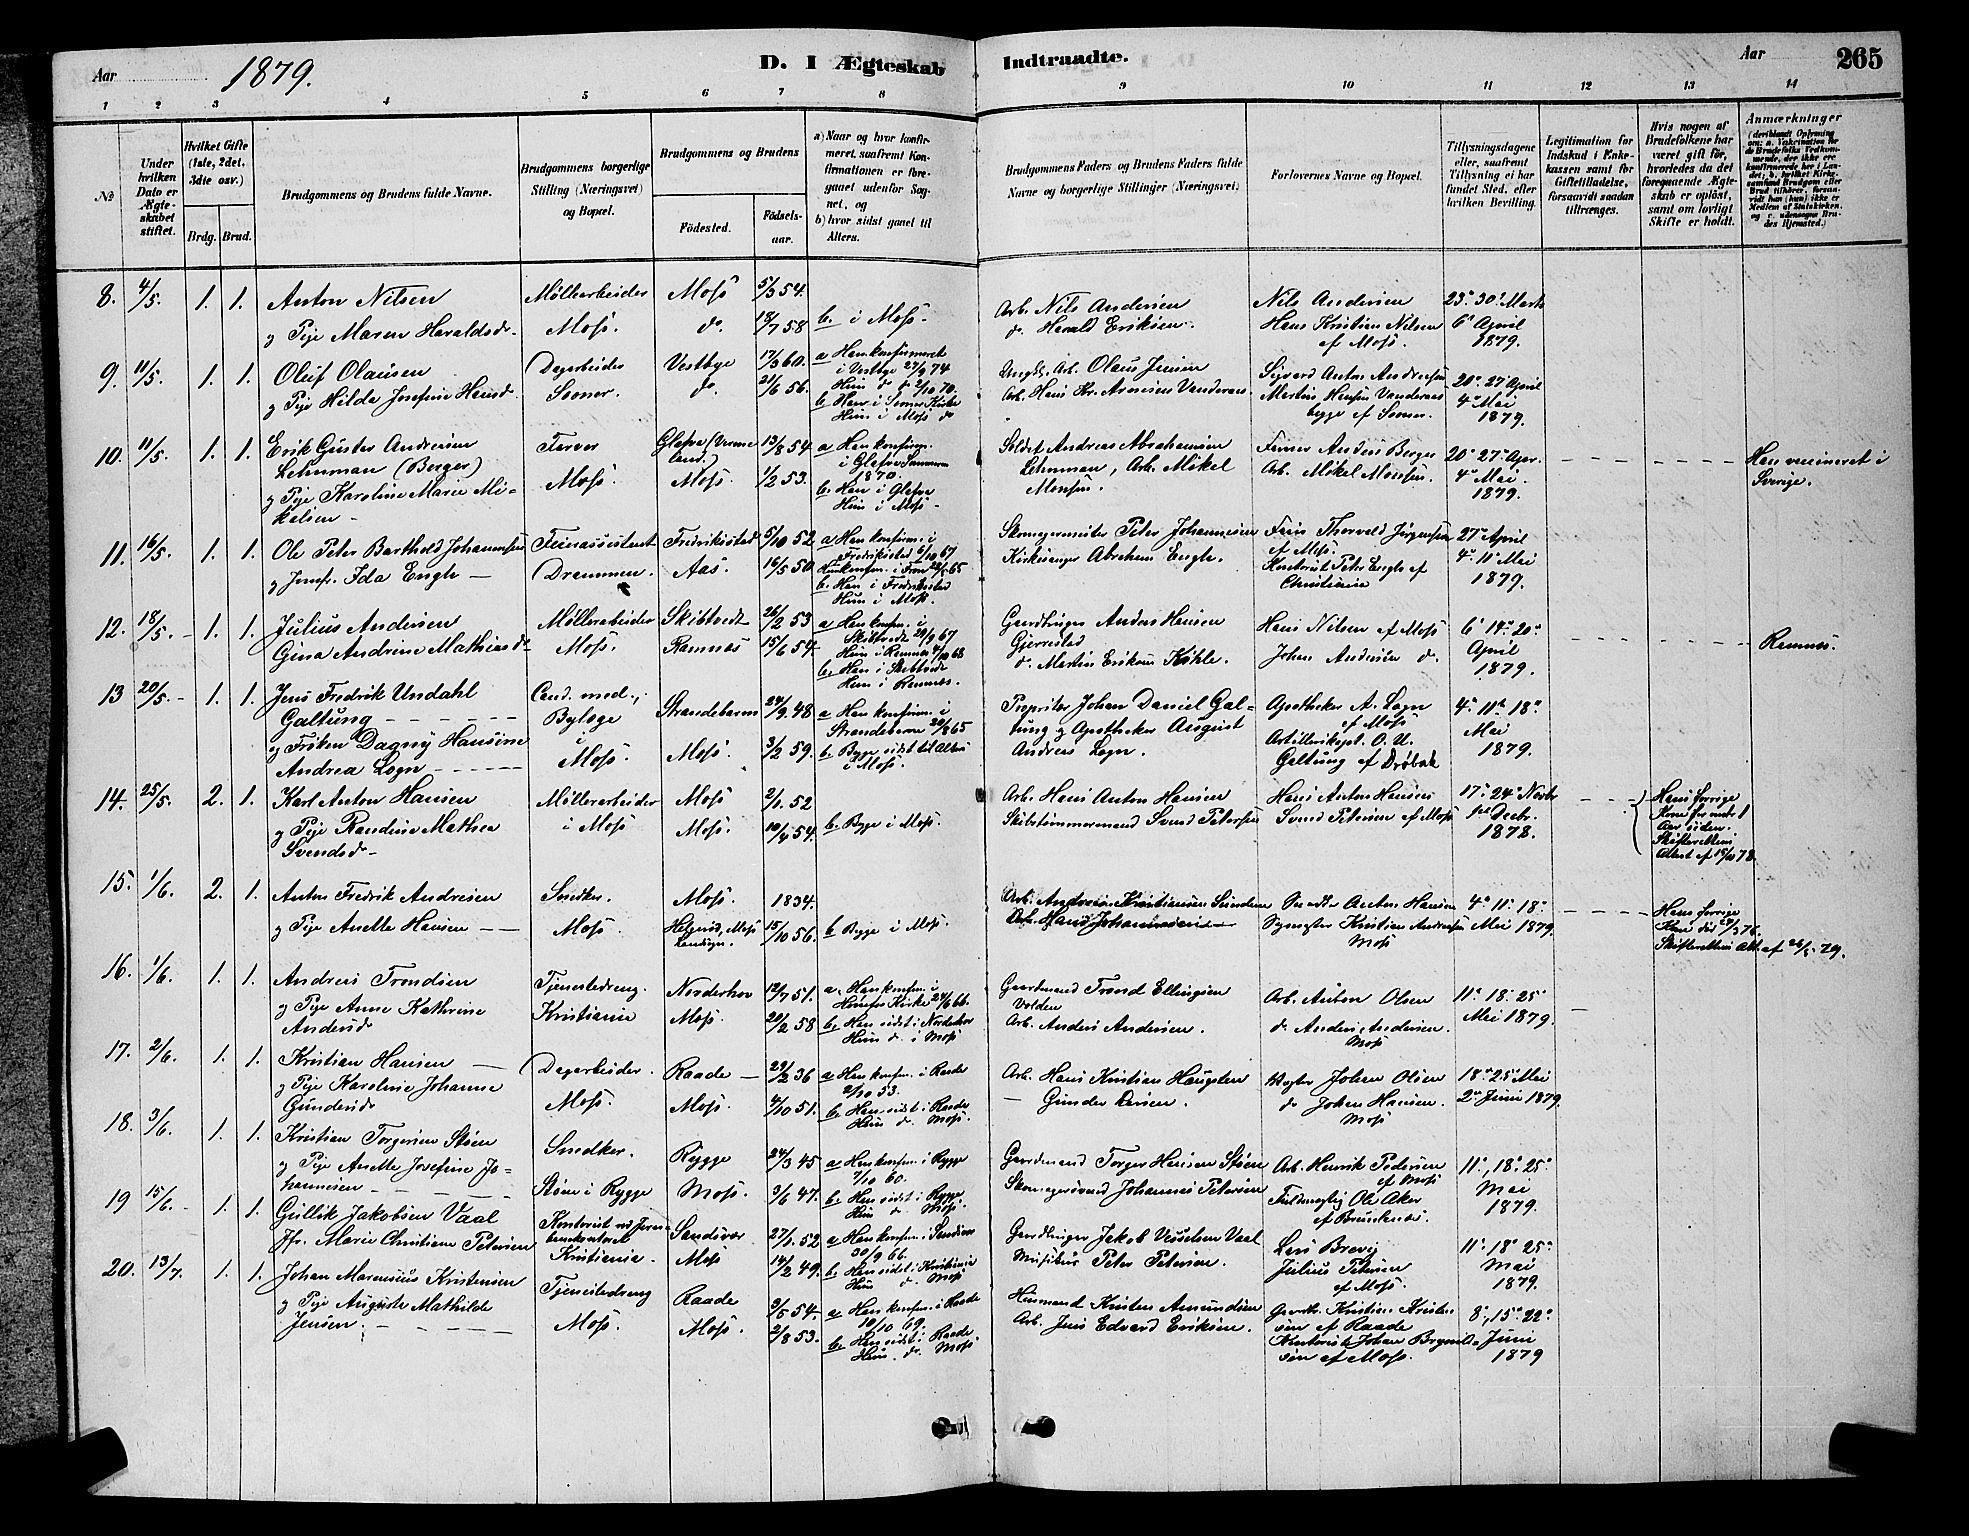 Aar 1879.
D. I Ægteskab Indtraadte.
Aar 265
1 2 3 4 5 6 7 8 9 10 11 12 13 14
№
Under hvilken Dato er Ægteskabet stiftet.
Hvilket Gifte (1ste, 2det, 3die osv.)
Brdg. Brud.
Brudgommens og Brudens fulde Navne.
Brudgommens borgerlige Stilling (Næringsvei) og Bopæl.
Brudgommens og Brudens
Fødested.
Fødselsaar.
a) Naar og hvor konfirmeret, saafremt Konfirmationen er foregaaet udenfor Sognet, og
b) hvor sidst gaaet til Alters.
Brudgommens Faders og Brudens Faders fulde Navne og borgerlige Stillinger (Næringsvei)
Forlovernes Navne og Bopæl.
Tillysningsdagene eller, saafremt Tillysning ei har fundet Sted, efter hvilken Bevilling.
Legitimation for Indskud i Enkekassen samt for Giftetilladelse, forsaavidt saadan tiltrænges.
Hvis nogen af Brudefolkene har været gift før, hvorledes da det foregaaende Ægteskab er opløst, samt om lovligt Skifte er holdt.
Anmærkninger
8. 4/5 1. 1. Anton Nilsen Møllearbeider Moss 5/3 54. Arb. Nils Andersen Nils Andersen 23' 30' Marts
og Pige Maren Haraldsd. Moss. do. 18/7 58 b. i Moss. do. Harald Eriksen. Hans Kristian Nilsen 6' April
af Moss. 1879.
9. 11/5. 1. 1. Oluf Olausen Dagarbeider Vestbye 17/3 60. a Han konfirmeret Olaus Jensen Sigvard Anton Andersen 20' 27' April
i Vestbye 27/9 74
og Pige Hilda Josefine Hansd. Sooner. do. 21/6 56. Hun do. 2/10 70. Arb. Hans Kr. Arnesen Martius Hansen 4' Mai
b. Han i Sooner Kirke af Sooner. 1879.
Hun i Moss do
10. 11/5. 1. 1. Erik Gustav Andersen Farver Glafva (Vermeland.) 13/8 54 a Han konfirm. Soldat Andreas Abrahamsen Farver Anders Berger 20' 27' Apr.
Lehnman (Berger) i Glafva Lehnman, Arb. Mikel Arb. Mikel Monsen. 4' Mai. Han vaccineret i
1870
og Pige Karoline Marie Mikelsen Moss. Moss. 1/2 53. b. Han i Glafva Monsen. 1879. Sverige.
Hun i Moss
11. 16/5. 1. 1. Ole Peter Barthold Johannesen Fredriksstad 5/10 52 a Han konfirm. i Skomagermester Peter Johannesen Thorvald Jörgensen 27' April
Fredriksstad 6/10 67 af Moss.
og Jomf. Ida Engh Drammen. Aas. 16/5 50 Kirkesanger Abraham Engh. Kontorist Peter Engh af 4' 11' Mai
b. Han i Fredriksstad Christiania 1879.
Hun i Moss.
12. 18/5. 1. 1. Julius Andersen Møllerarbeider Skibtvedt 26/2 53 a Han konfirm. i Gaardbruger Anders Hansen Hans Nilsen af Moss 6'
Skibtvedt 29/9 67 Gjerrestad
Gina Andrine Mathiasd. Moss. Ramnæs 15/6 54 Hun i Ramnæs 4/10 68 do. Martin Eriksen Johan Andersen do. April Ramnæs.
b. Han i Skibtvedt 1879.
Hun i Ramnæs.
13 20/5 1. 1. Jens Fredrik Undahl Cand. med., Strandebarm 24/9 48 a Han konfirm. i Propritær Johan Daniel Gal- Apotheker A. Logn 4' 11' 18'
Galtung Bylæge Strandebarm 20/8 65 tung og Apotheker August af Moss Mai
og Frøken Dagny Hansine i Moss. Moss. 3/2 59. b. Begge sidst til Alters Andreas Logn. Artillerikapt. O. U. 1879.
Andrea Logn i Moss. Galtung af Drøbak
14. 25/5. 2. 1. Karl Anton Hansen Møllerarbeider Moss 2/1 52 Arb. Hans Anton Hansen Hans Anton Hansen 17' 24' Novbr Hans forrige
og Pige Randine Mathea i Moss Moss. 54. b. Begge i Moss. Skibstømmermand Svend Petersen Svend Petersen af Moss Decbr. Kone
Svendsd. 1878. Aar siden.
Attest af 15/11 78.
15. 1/6. 2. 1. Anton Fredrik Andresen Snedker. Moss. 1834. Arb. Andreas Kristiansen Snedk. Anton Hansen 4' 11' 18' Hans forrige
og Pige Anette Hansen Moss. Moss Landsogn. 15/10 56. b. Begge i Moss. Arb. Hans Johannesen Kristian Andersen Mai 1879 Kone død 76.
Moss Skifteretten Att. af 26/5 79.
16. 1/6. 1. 1. Andreas Trondsen Tjenestedreng. Norderhov 12/7 51. a. Han konfm. i Gaardmand Trond Ellingsen Arb. Anton Olsen 11' 18' 25'
Hønefos Kirke 24/6 66. Volden
og Pige Anne Kathrine Kristiania Moss. 20/2 58 b. Han sidst i Norderhov Arb. Anders Andersen. do. Anders Andersen. Mai 1879.
Andersd. Hun do. i Moss Moss
17. 2/6. 1. 1. Kristian Hansen Dagarbeider. Raade 29/2 36 a Han konfm. i Raade Arb. Hans Kristian Haugsten Johan Olsen 18' 25' Mai
2/10 53.
og Pige Karoline Johanne Moss. Moss. 4/10 51. b. Han sidst i Raade Gunder Larsen. do Johan Hansen. 2' Juni 1879.
Gundersd. Hun do. Moss. Moss
18. 3/6. 1. 1. Kristian Torgersen Støen Snedker. Rygge 24/3 45 a Han konfm. i Rygge Gaardmand Torger Hansen Støen Arb. Henrik Pedersen 11', 18' 25'
7/10 60. af Moss
og Pige Anette Josefine Jo- Støen i Rygge Moss. 3/6 47. b. Han sidst i Rygge Skomagersvend Johannes Petersen Fuldmægtig Ole Aker Mai
hannesen Hun do. Moss. 1879.
19 15/6. 1. 1. Gullik Jakobsen Vaal Kontorist ved Jern- Sandsvær 27/1 52 a Han konfm. i Sandsvær Gaardbruger Jakob Vaal Lars Brevig 11' 18' 25'
banekontoret 30/9 66.
Jfr. Marie Christiane Petersen Kristiania. Moss 14/2 49. b. Han sidst i Kristiania Musikus Peter Petersen. Julius Petersen Mai
Hun do. Moss af Moss. 1879.
20. 13/7. 1. 1. Johan Marenius Kristensen Tjenestedreng Raade 3/5 54 a Han konfm. i Raade Husmand Kristen Amundsen Gaardbr. Kristian Kristen- 8', 15' 22'
10/10 69. sen af Raade
og Pige Augusta Mathilde Moss. Moss. 2/8 53. b. Han sidst i Raade Arb. Jens Edvard Eriksen. Kontorist Johan Juni
Jensen. Hun. do. Moss sen af Moss. 1879